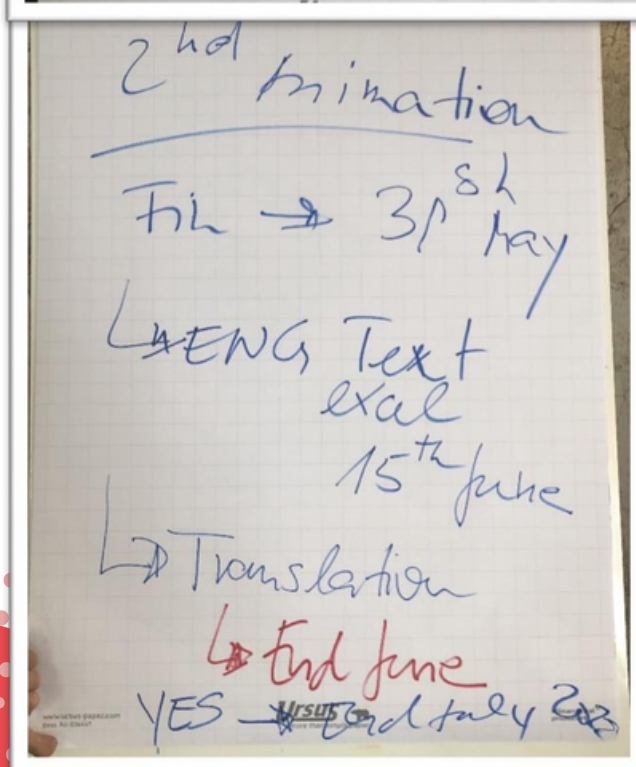 2nd Animation
Fin → 31st May
↳ ENG Text
exal
15th June
↳ Translation
↳ End June
YES → End July
Ursus